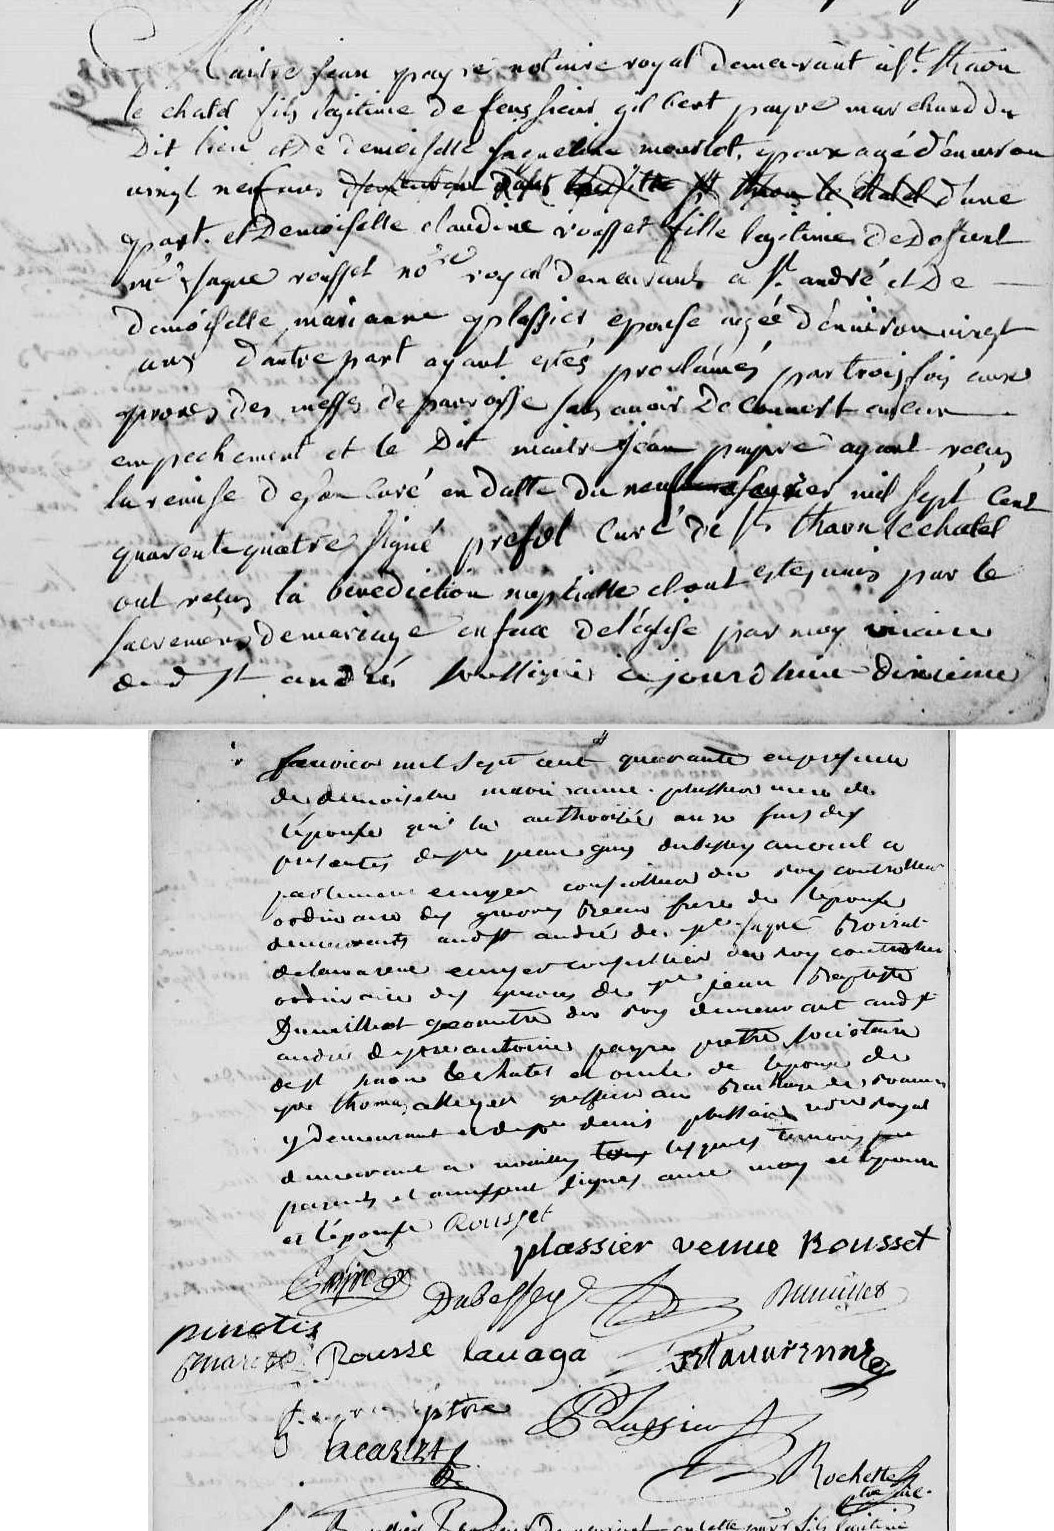 Maitre jean payre notaire royal demeurant a St. haon
le chatel fils legitime de feu sieur gilbert payre marchand du
Dit lieu et de demoiselle jaqueline mourlot, epoux agé d'environ
vingt neuf ans St haon le chatel d'une
part. et Demoiselle claudine rousset fille legitime de Defunt
me jaque rousset nore royal demeurant a St. andré et De
demoiselle marianne plassier epouse agée d'environ vingt
ans d'autre part ayant estés proclamés par trois fois aux
prones des messes de parroisse sans avoir Decouvert aucun
empechement et le Dit maitre jean payre ayant reçus
la remise de son curé en datte du neuf fevrier mil sept cent
quarente quatre signé prefol curé de St haon le chatel
ont reçus la benediction nuptialle et ont estes unis par le
sacrement de mariage en face de l'eglise par moy vicaire
de St andré soussigné cejourdhuie dixieme
fevrier mil sept cent quarante en presence
de demoiselle marianne plassier mere de
l'epouse qui la authorisée aux fins des
presentes de sr jean guy dubessey avocat a
parlement ecuyer conseiller du roy controlleur
ordinaire des guerres beau frere de l'epouse
demeurants audit St andré de sr jaque
delavarenne ecuyer conseiller du roy controlleur
ordinaire des guerres de sr jean Baptiste
Dumillet geometre du roy demeurant aud St
andré de sre antoine payre pretre societaire
de St haon le chatel et oncle de l'epoux de
sre thomas greffier au Bailliage de Roanne
y demeurant et de sre denis plassier nore royal
demeurant a noailly lesquels temoins
parents et ont signes avec moy et l'epoux
et l'epouse Rousset
plassier veuve Rousset
Payre Dubessey Dumillet
Rousse lavaga Delavarenne
ptre Plassier
Rochette
ptre vic.